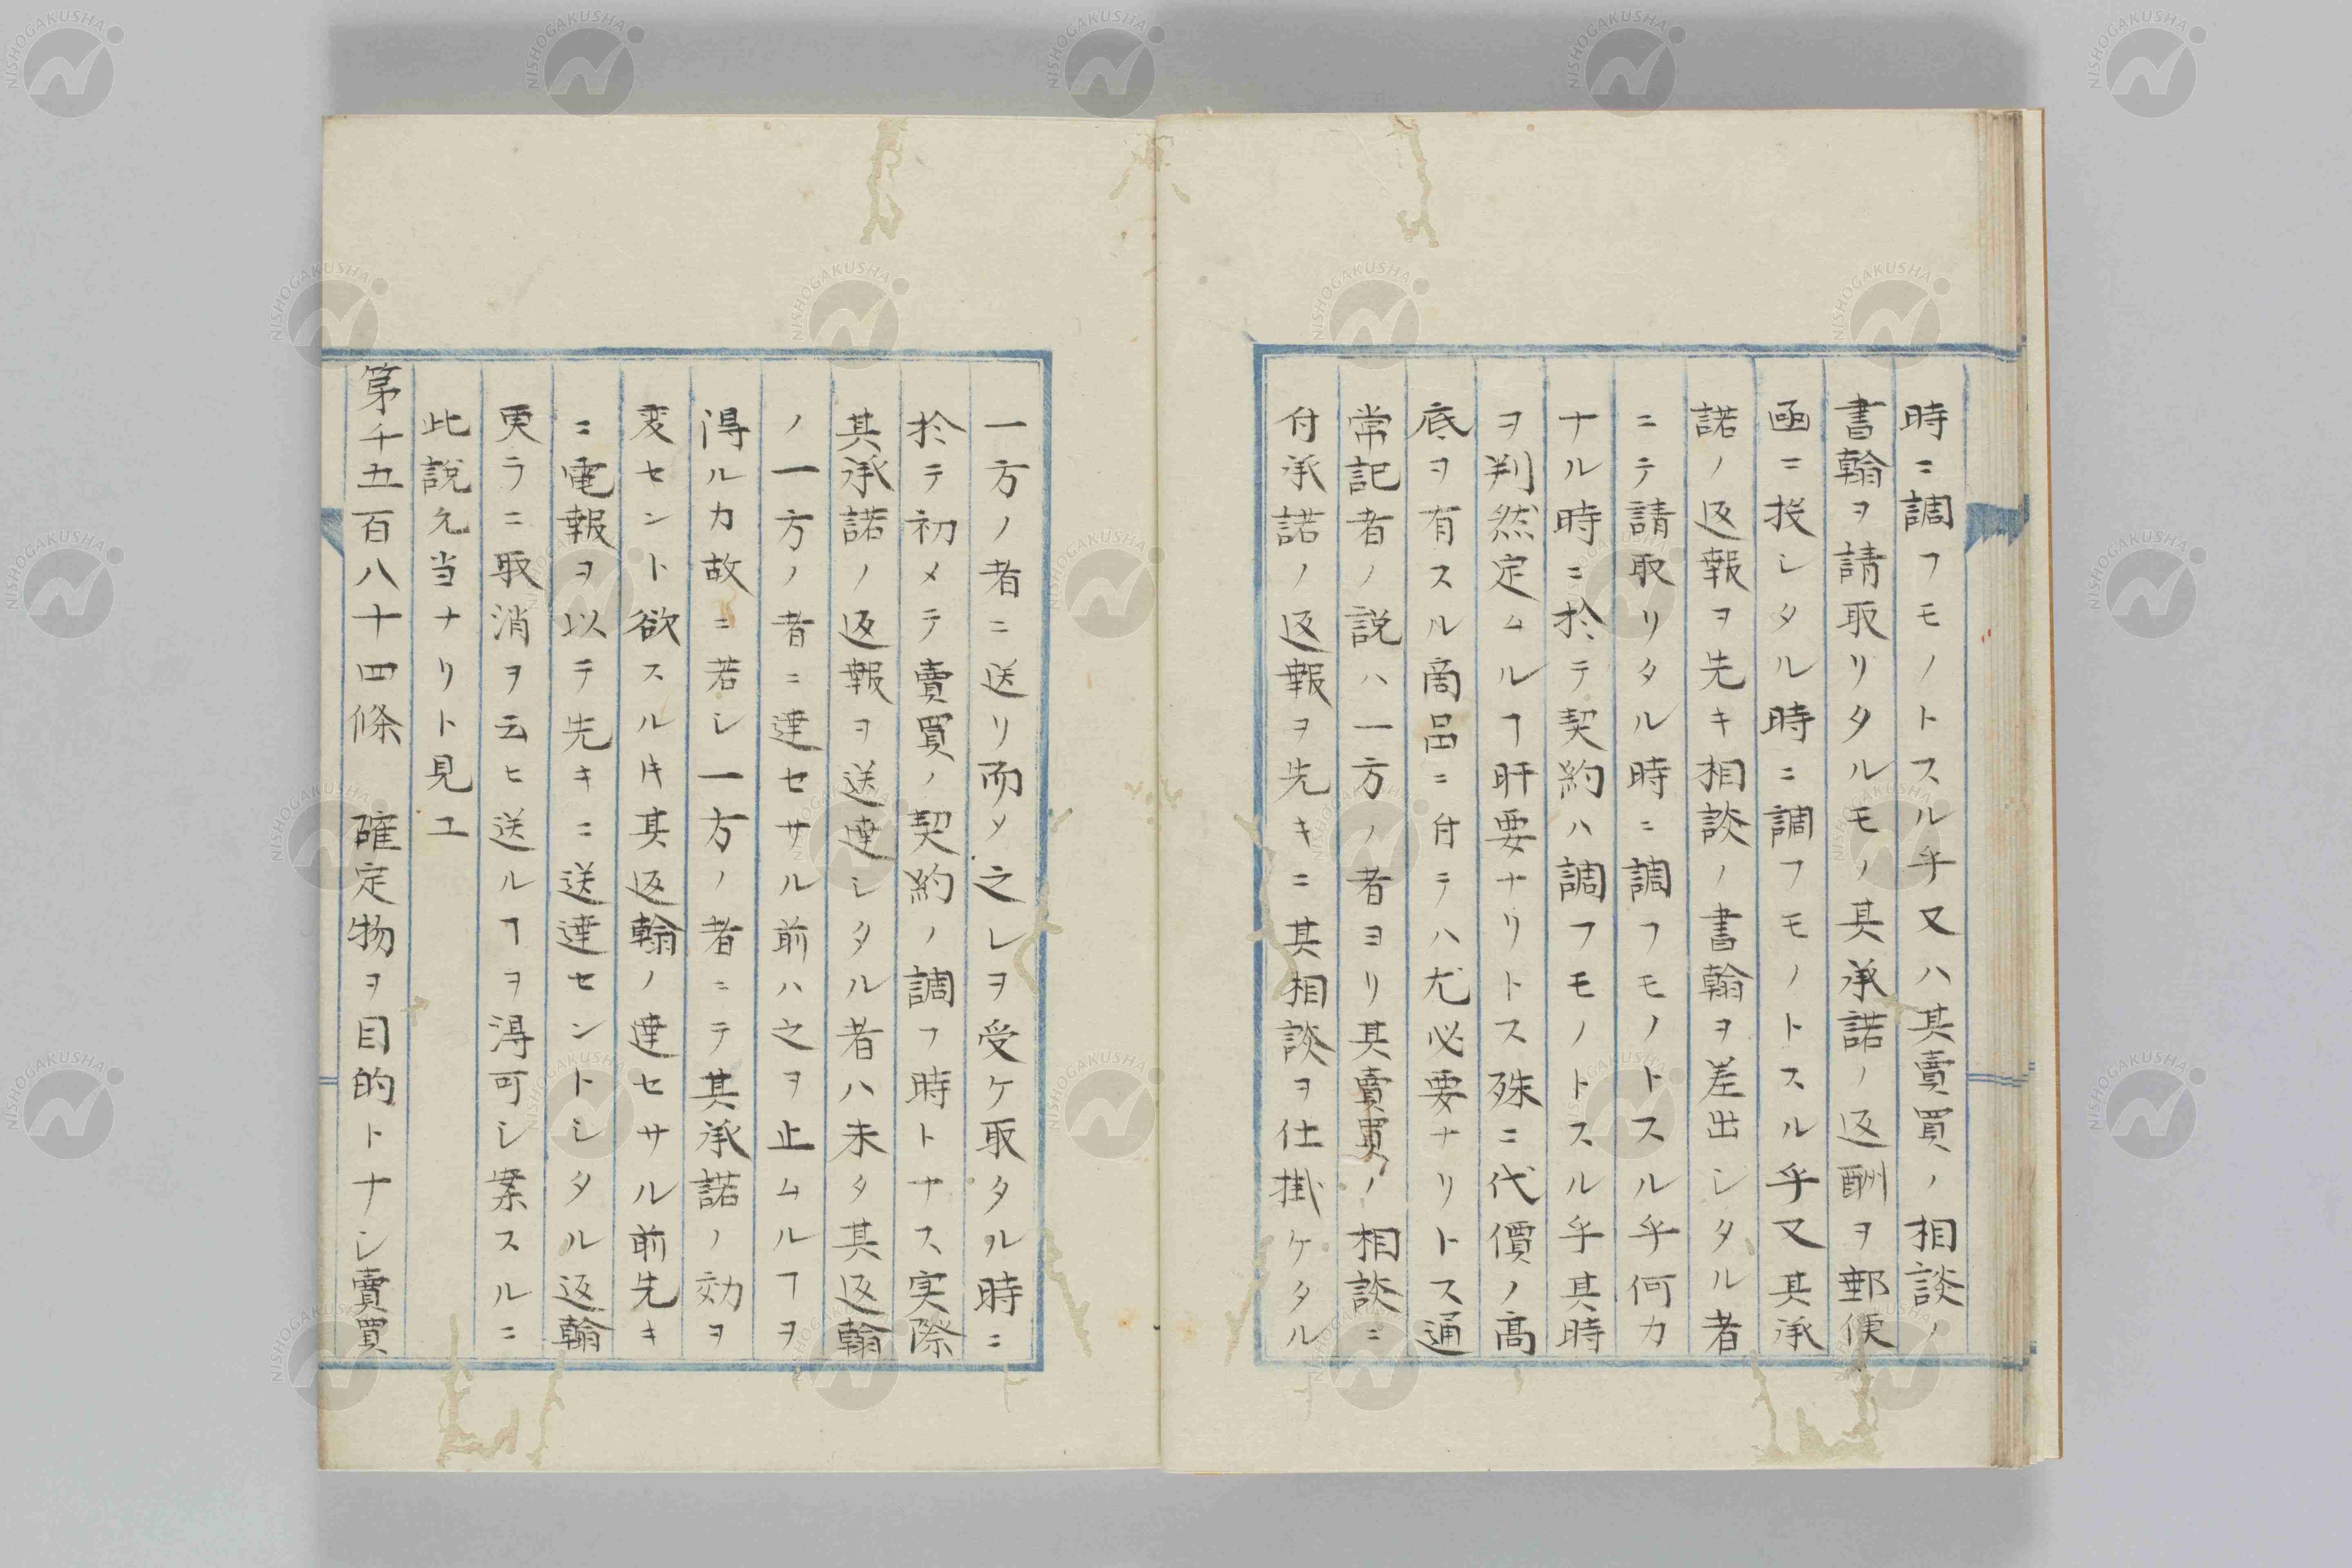 時ニ調フモノトスル乎又ハ其賣買ノ相談ノ
書翰ヲ請取リタルモノ其承諾ノ返酬ヲ郵便
凾ニ投シタル時ニ調フモノトスル乎又其承
諾ノ返報ヲ先キ相談ノ書翰ヲ差出シタル者
ニテ請取リタル時ニ調フモノトスル乎何カ
ナル時ニ於テ契約ハ調フモノトスル乎其時
ヲ判然定ムルヿ肝要ナリトス殊ニ代價ノ高
底ヲ有スル商品ニ付テハ尤必要ナリトス通
常記者ノ説ハ一方ノ者ヨリ其賣買ノ相談ニ
付承諾ノ返報ヲ先キニ其相談ヲ仕掛ケタル
一方ノ者ニ送リ而〆之レヲ受ケ取タル時ニ
於テ初メテ賣買ノ契約ノ調フ時トナス実際
其承諾ノ返報ヲ送達シタル者ハ未タ其返翰
ノ一方ノ者ニ達セサル前ハ之ヲ止ムルヿヲ
得ルカ故ニ若シ一方ノ者ニテ其承諾ノ効ヲ
変セント欲スル𪜈其返翰ノ達セサル前先キ
ニ電報ヲ以テ先キニ送達セントシタル返翰
更ラニ取消ヲ云ヒ送ルヿヲ得可シ案スルニ
此説允当ナリト見ユ
第千五百八十四條　確定物ヲ目的トナシ賣買
NISHOGAKUSHA